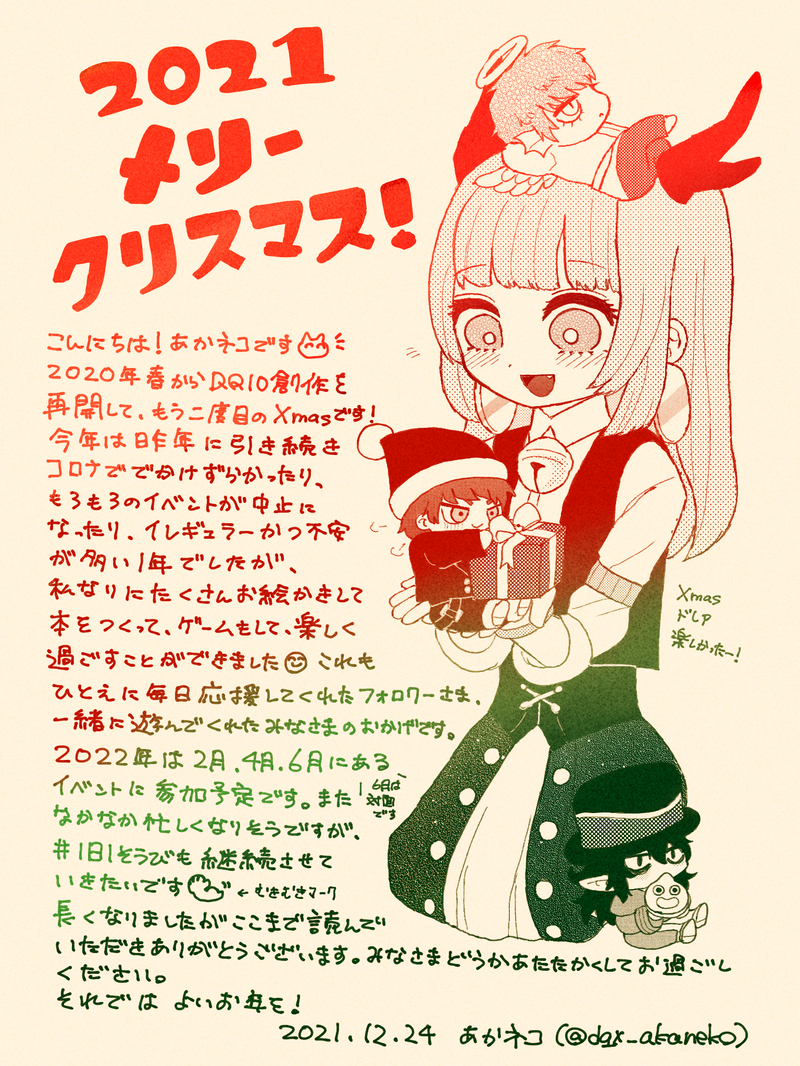 2021
メリー
クリスマス!
こんにちは!あかネコです
2020年春からDQ10創作を
再開して、もう二度目のXmasです!
今年は昨年に引き続き
コロナででかけずらかったり、
もろもろのイベントが中止に
なったり、イレギュラーかつ不安
が多い1年でしたが、
私なりにたくさんお絵かきして
本をつくって、ゲームもして、楽しく
過ごすことができました これも
ひとえに毎日応援してくれたフォロワーさま、
一緒に遊んでくれたみなさまのおかげです。
2022年は2月.4月.6月にある
イベントに参加予定です。また
6月は
対面
です
なかなか忙しくなりそうですが、
#1日1そうびも継続させて
いきたいです ←むきむきマーク
長くなりましたがここまで読んで
いただきありがとうございます。みなさまどうかあたたかくしてお過ごし
ください。
それでは よいお年を!
2021.12.24 あかネコ (@dqx_akaneko)
Xmas
ドレア
楽しかったー!